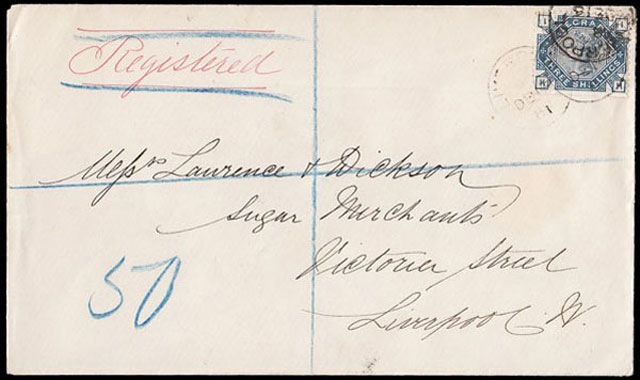 Registered
Messrs Laurence & Dickson
Sugar Merchants
Victoria Street
Liverpool W.
50
SHILLINGS